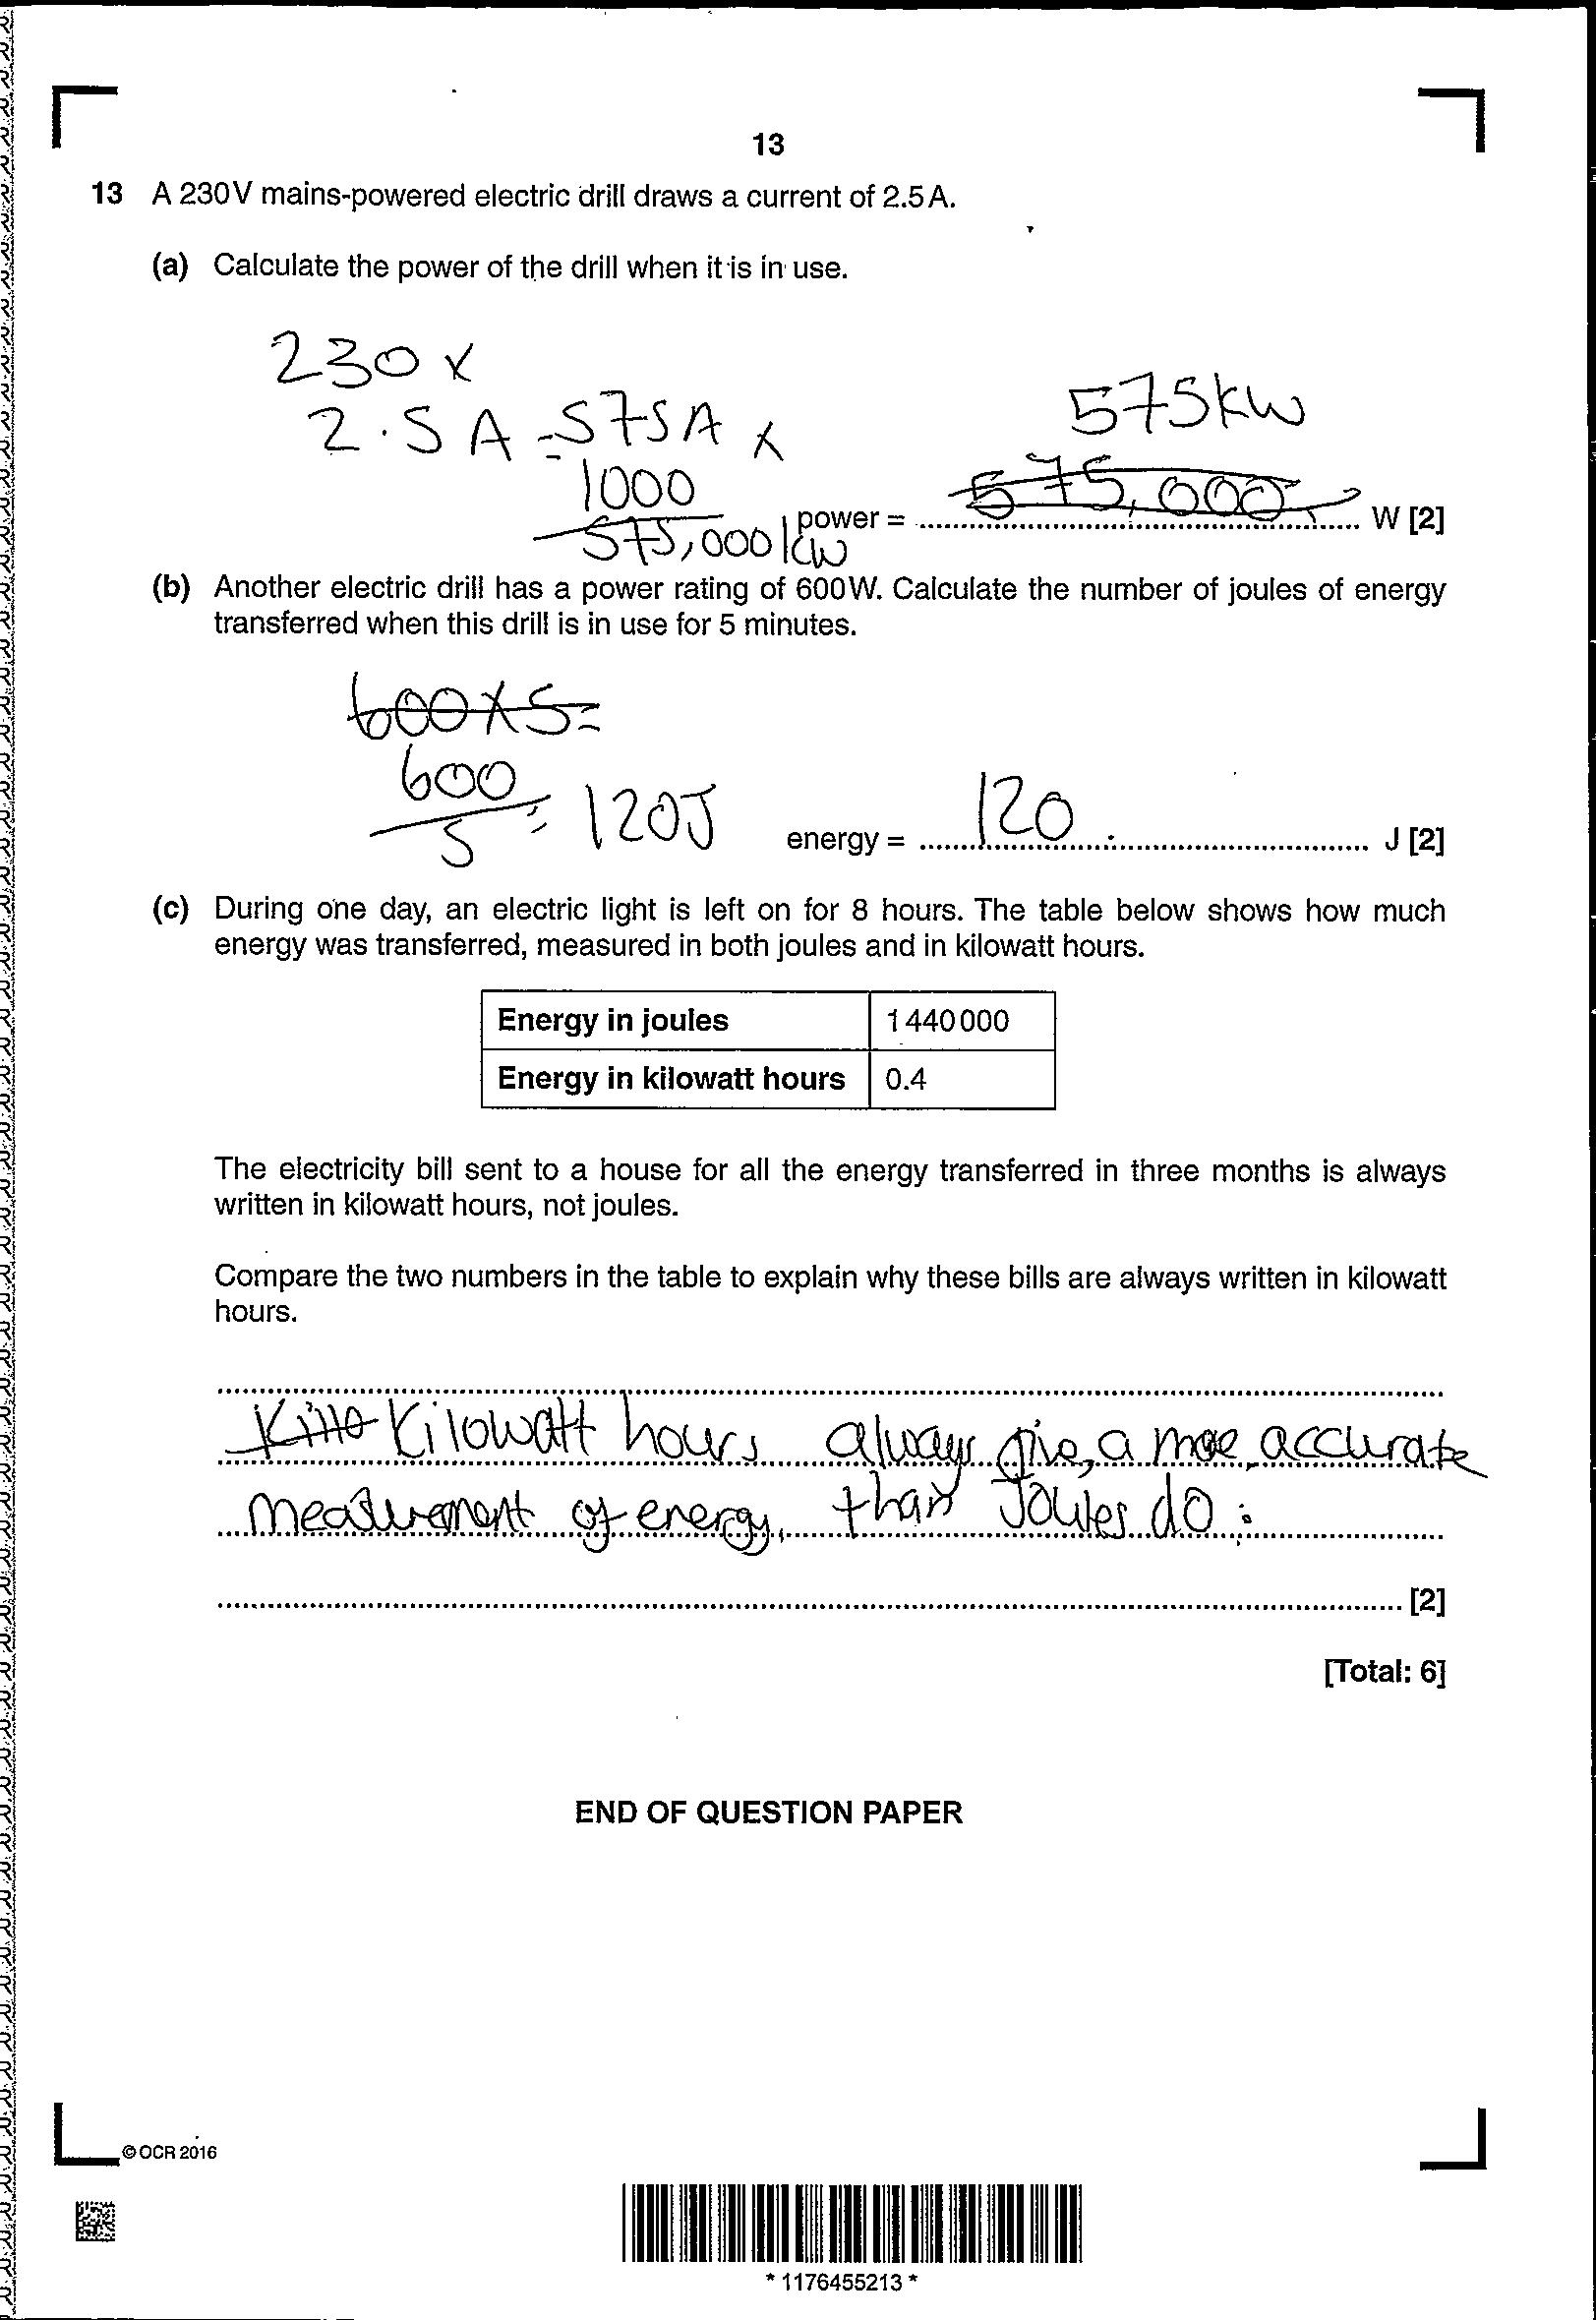 13
13 A 230V mains-powered electric drill draws a current of 2.5A.
(a) Calculate the power of the drill when it is in use.
230 x
2.5 A = 575A x
1000
575,000 kW
575kW
575,000
power = ........ W [2]
(b) Another electric drill has a power rating of 600W. Calculate the number of joules of energy
transferred when this drill is in use for 5 minutes.
600 x 5 =
600
5 = 120J
energy = 120 J [2]
(c) During one day, an electric light is left on for 8 hours. The table below shows how much
energy was transferred, measured in both joules and in kilowatt hours.
Energy in joules 1440000
Energy in kilowatt hours 0.4
The electricity bill sent to a house for all the energy transferred in three months is always
written in kilowatt hours, not joules.
Compare the two numbers in the table to explain why these bills are always written in kilowatt
hours.
Kilowatt hours always give a more accurate
measurement of energy, than Joules do.
[2]
[Total: 6]
END OF QUESTION PAPER
© OCR 2016
* 1176455213 *